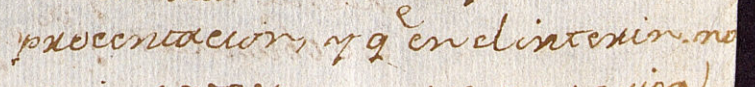 procentacion, y qᵉ en el interin. no